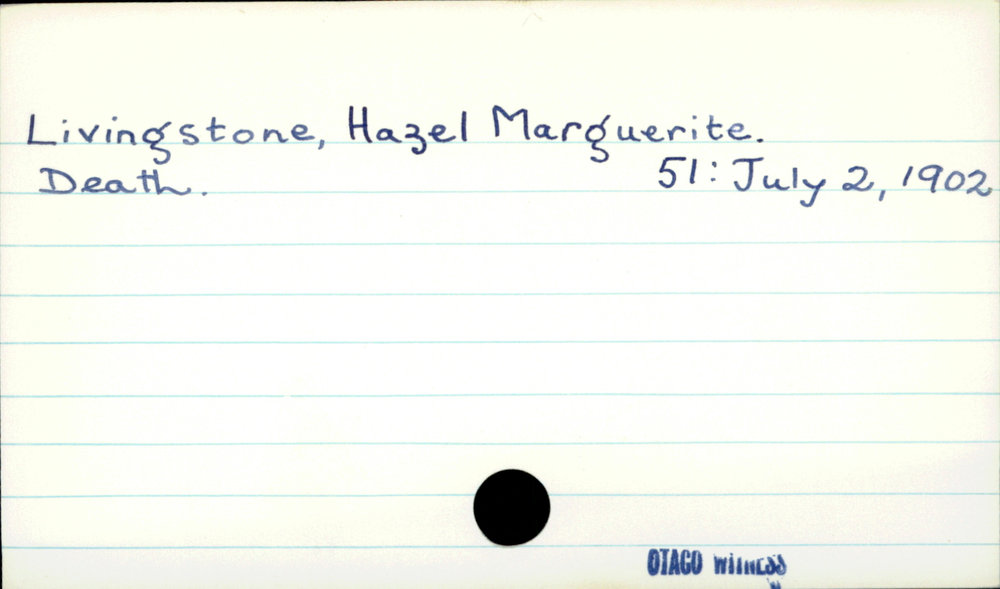 Livingstone, Hazel Marguerite.
Death. 51: July 2, 1902
OTAGO WITNESS